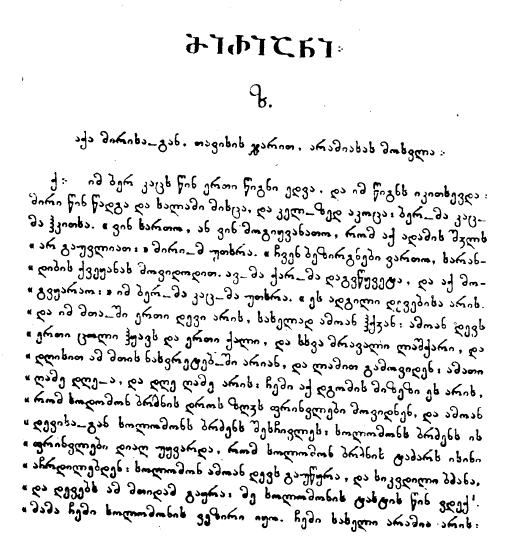 ზ.
აქა მირისა_გან, თავისის ჯარით, არამიასას მოსვლა:
ქ: იმ ბერ კაცს წინ ერთი წიგნი ედვა, და იმ წიგნს იკითხევდა:
მირი წინ წადგა და სალამი მისცა, და კელ_ზედ აკოცა: ბერ_მა კაც_
მა ჰკითხა. « ვინ ხართო, ან ვინ მოგიყვანათო, რომ აქ ადამის შვილს
« არ გაუვლიათ: » მირი_მ უთხრა. « ჩვენ ბეზირგნები ვართო, ხარან_
« დიბის ქვეყანას მოვიდოდით. ავ_მა ქარ_მა დაგვწყვეტა, და აქ მო_
« გვყარაო: » იმ ბერ_მა კაც_მა უთხრა. « ეს ადგილი დევებისა არის.
« და იმ მთა_ში ერთი დევი არის, სახელად ამოან ჰქვან: ამოან დევს
« ერთი ცოლი ჰყავს და ერთი ქალი, და სხვა მრავალი ლაშქარი, და
« დღისით ამ მთის ნახვრეტებ_ში არიან, და ღამით გამოვიდენ: ამათი
« ღამე დღე_ა, და დღე ღამე არის: ჩემი აქ დგომის მიზეზი ეს არის,
« რომ სოლომონ ბრძნის დროს ზღვს ფრინვლები მოვიდნენ, და ამოან
« დევისა_გან სოლომონს ბრძენს შესჩივლეს: სოლომონს ბრძენს ის
« ფრინვლები დიაღ უყვარდა, რომ სოლომონ ბრძნის ტაბარს ისინი
« აჩრდილებდენ: სოლომონ ამოან დევს გაუწყრა, და სიკვდილი ბძანა,
« და დევებს ამ მთიდამ გაყრა: მე სოლომონის ტახტის წინ ვდექ.
« მამა ჩემი სოლომონის ვეზირი იყო. ჩემი სახელი არამია არის: